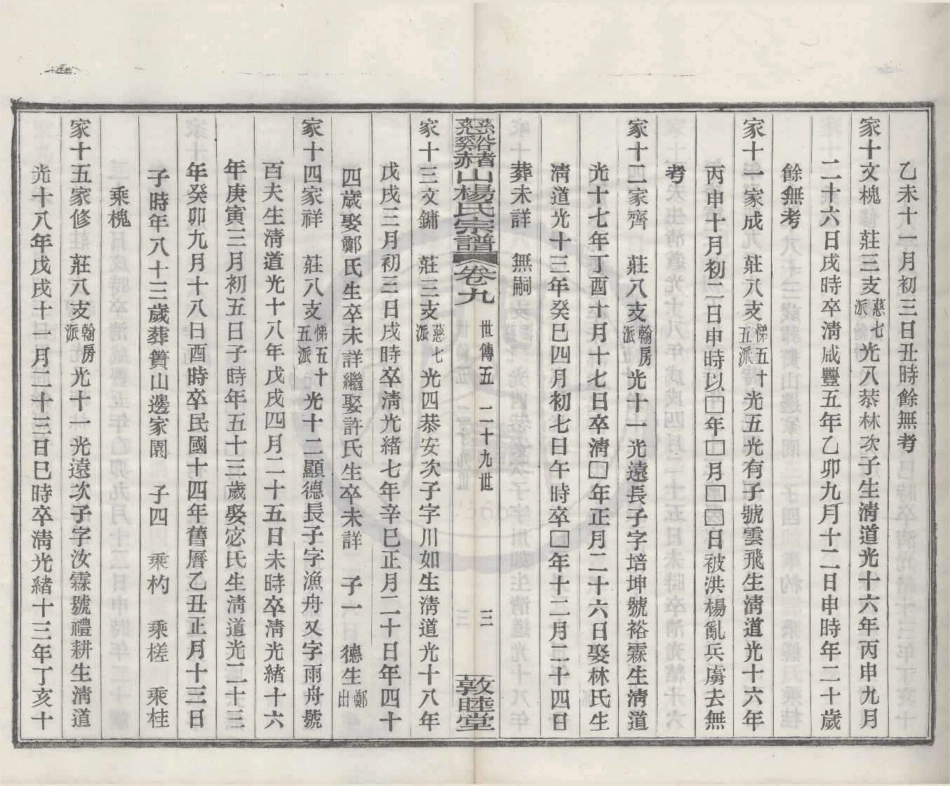 乙未十一月初三日丑時餘無考
家十文槐　莊三支慈七派光八恭林次子生淸道光十六年丙申九月
二十六日戌時卒淸咸豐五年乙卯九月十二日申時年二十歲
餘無考
家十一家成　莊八支悌五十五派光五光有子號雲飛生淸道光十六年
丙申十月初二日申時以□年□月□□日被洪楊亂兵虜去無
考
家十二家齊　莊八支翰房派光十一光遠長子字培坤號裕霖生淸道
光十七年丁酉十月十七日卒淸□年正月二十六日娶林氏生
淸道光十三年癸巳四月初七日午時卒□年十二月二十四日
葬未詳　無嗣
慈谿赭山楊氏宗譜　卷九　世傳五　二十九世　三　敦睦堂
家十三文鏞　莊三支慈七派光四恭安次子字川如生淸道光十八年
戊戌三月初三日戌時卒淸光緒七年辛巳正月二十日年四十
四歲娶鄭氏生卒未詳繼娶許氏生卒未詳　子一　德生鄭出
家十四家祥　莊八支悌五十五派光十二顯德長子字漁舟又字雨舟號
百夫生淸道光十八年戊戌四月二十五日未時卒淸光緒十六
年庚寅三月初五日子時年五十三歲娶宓氏生淸道光二十三
年癸卯九月十八日酉時卒民國十四年舊曆乙丑正月十三日
子時年八十三歲葬黌山邊家園　子四　乘杓　乘槎　乘桂
乘槐
家十五家修　莊八支翰房派光十一光遠次子字汝霖號禮耕生淸道
光十八年戊戌十一月二十三日巳時卒淸光緒十三年丁亥十